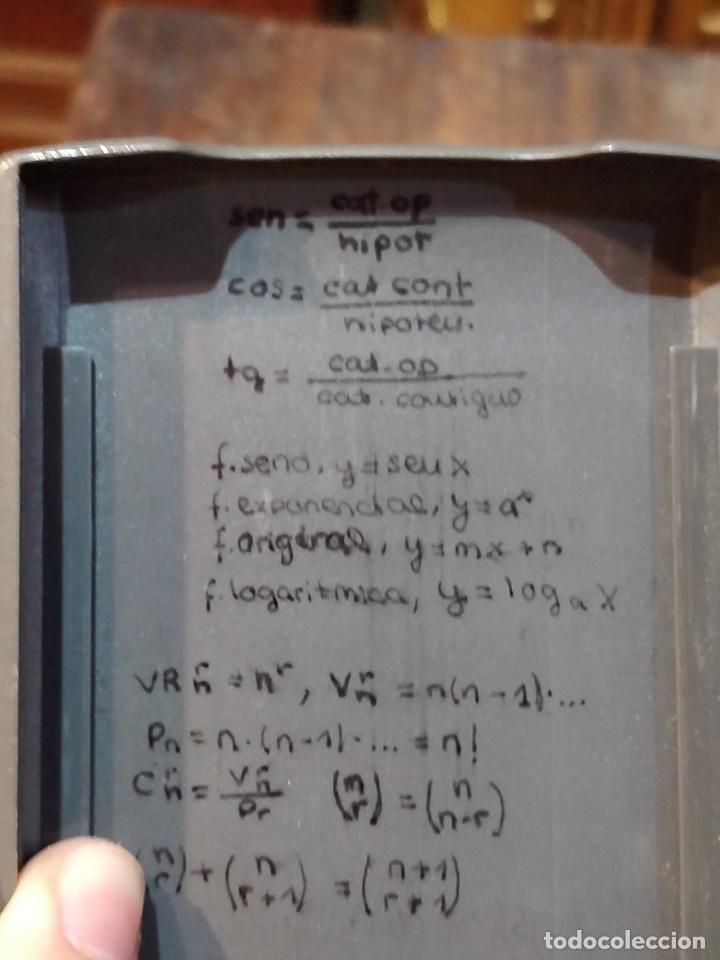 sen = cat.op / hipot
cos = cat cont / hipoten.
tg = cat.op / cat. contiguo
f.seno, y = sen x
f.exponencial, y = aˣ
f.original, y = mx + n
f.logaritmica, y = logₐ x
VR n^r = n^r, V n^r = n(n-1)·...
Pn = n·(n-1)·... = n!
C n^r = V n^r / Pr (n r) = (n n-r)
(n r) + (n r+1) = (n+1 r+1)
todocoleccion